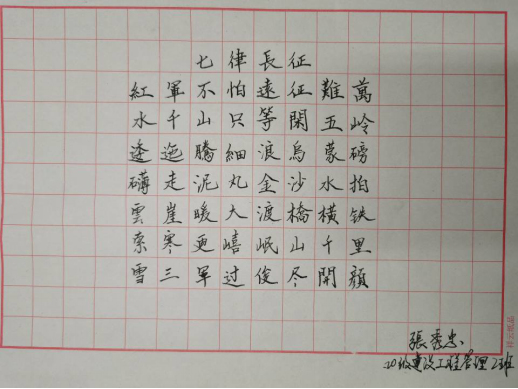 七律長征
紅軍不怕遠征難萬
水千山只等閑五岭
逶迤騰細浪烏蒙磅
礴走泥丸金沙水拍
雲崖暖大渡橋橫铁
索寒更嘻岷山千里
雪三軍过俊尽開顏
張秀忠
20级建设工程管理2班